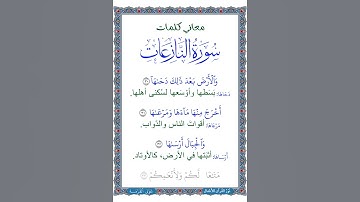 معاني كلمات
سورة النازعات
وَٱلْأَرْضَ بَعْدَ ذَٰلِكَ دَحَىٰهَآ ٣٠
دَحَاهَا: بَسَطها وأوْسَعها لسُكنى أهلها.
أَخْرَجَ مِنْهَا مَآءَهَا وَمَرْعَىٰهَا ٣١
مَرْعَاهَا: أقوات الناس والدَّواب.
وَٱلْجِبَالَ أَرْسَىٰهَا ٣٢
أَرْسَاهَا: أثبَتها في الأرض، كالأوتاد.
مَتَٰعًا لَّكُمْ وَلِأَنْعَٰمِكُمْ ٣٣